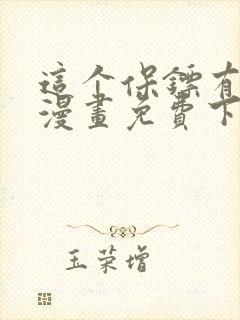 這个保鏢有
漫畫免費下
玉荣增